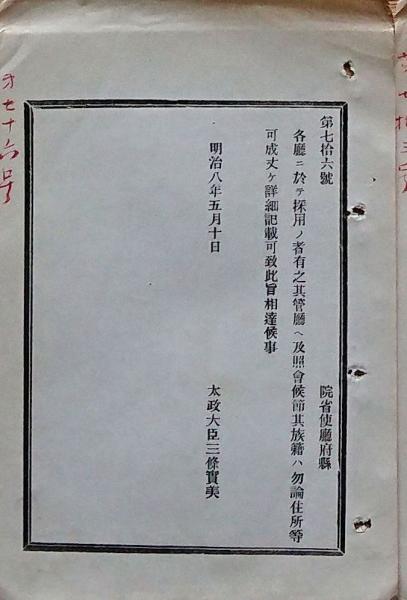 第七拾六號
院省使廳府縣
各廳ニ於テ採用ノ者有之其管廳ヘ及照會候節其族籍ハ勿論住所等
可成丈ケ詳細記載可致此旨相達候事
明治八年五月十日
太政大臣三條實美
第七十六号